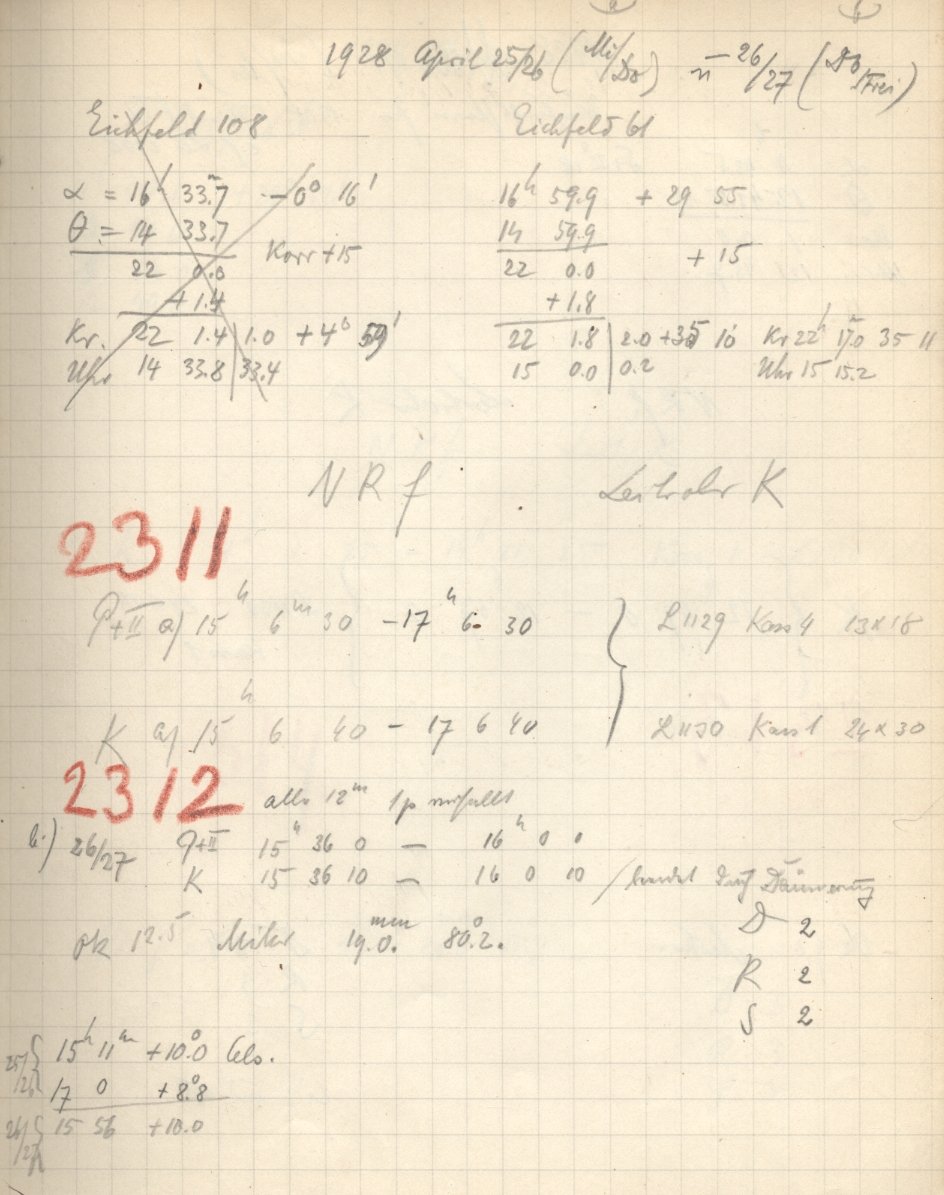 1928 April 25/26 (Mi/Do) u 26/27 (Do/Frei)
Eichfeld 108 Eichfeld 61
α = 16h 33.m7 – 0° 16' 16h 59.9 + 29 55
θ = 14 33.7 14 59.9
Korr + 15 + 15
22 0.0 22 0.0
+ 1.4 + 1.8
Kr. 22 1.4 | 1.0 + 4° 59' 22 1.8 | 2.0 + 35 10 Kr 22h 17.0 35 11
Uhr 14 33.8 | 33.4 15 0.0 | 0.2 Uhr 15 15.2
N R f Leitrohr K
2311
P+II a) 15h 6m 30 – 17h 6 30 L1129 Kass 4 13 x 18
K a) 15h 6 40 – 17 6 40 L1130 Kass 1 24 x 30
2312 alle 12m
b.) 26/27 P+II 15h 36 0 – 16h 0 0
K 15 36 10 – 16 0 10 / beendet durch Dämmerung
D 2
Ok 12.5 Mikr 19.0.mm 80°.2.
R 2
S 2
25/26 { 15h 11m + 10°.0 Cels.
17 0 + 8°.8
26/27 { 15 56 + 10.0